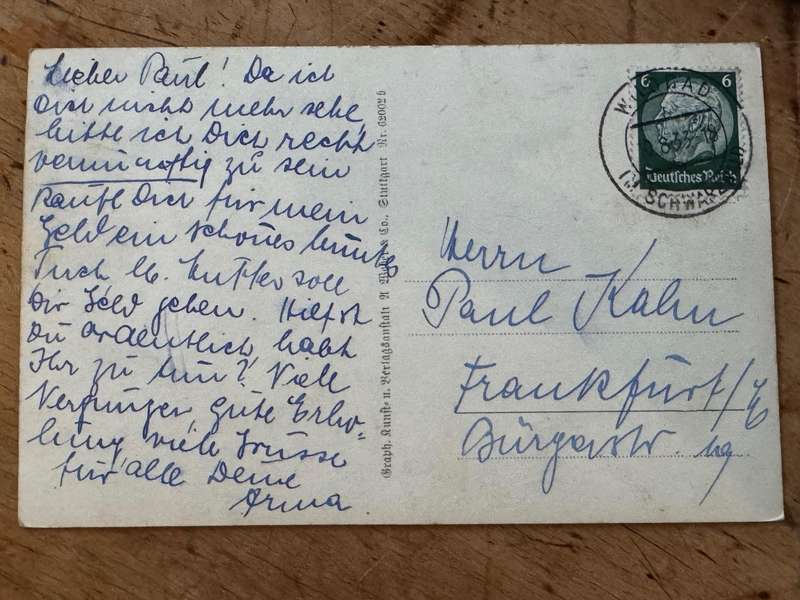 Lieber Paul! Da ich
Dich nicht mehr sehe,
bitte ich Dich recht
vernünftig zu sein
kaufe Dir für mein
Geld ein schönes buntes
Tuch lb. Mutter soll
Dir Geld geben. Hilfst
Du ordentlich, habt
Ihr zu tun? Viele
Vergnügen gute Erho-
lung viele Grüsse
für alle Deine
Graph. Kunst- u. Verlagsanstalt A. Weber & Co., Stuttgart Nr. 62002 b
6 6
Deutsches Reich
WILDBAD
SCHWARZW
Herrn
Paul Kahn
Frankfurt/M
Bürgerstr.